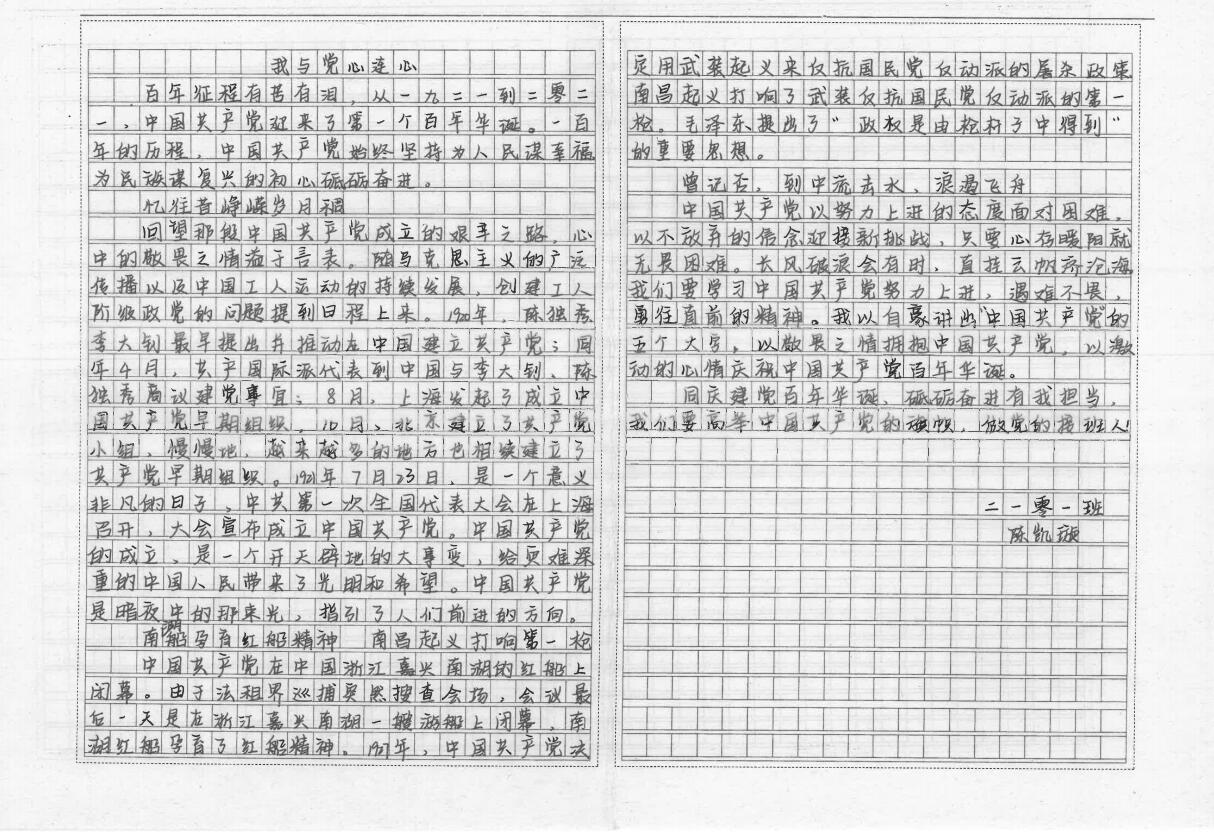 我与党心连心
百年征程有苦有泪，从一九二一到二零二
一，中国共产党迎来了第一个百年华诞。一百
年的历程，中国共产党始终坚持为人民谋幸福
为民族谋复兴的初心砥砺奋进。
忆往昔峥嵘岁月稠
回望那段中国共产党成立的艰辛之路，心
中的敬畏之情溢于言表。随马克思主义的广泛
传播以及中国工人运动的持续发展，创建工人
阶级政党的问题提到日程上来。1920年，陈独秀
李大钊最早提出并推动在中国建立共产党；同
年4月，共产国际派代表到中国与李大钊、陈
独秀商议建党事宜；8月，上海发起了成立中
国共产党早期组织，10月，北京建立了共产党
小组，慢慢地，越来越多的地方也相续建立了
共产党早期组织。1921年7月23日，是一个意义
非凡的日子，中共第一次全国代表大会在上海
召开，大会宣布成立中国共产党。中国共产党
的成立，是一个开天辟地的大事变，给灾难深
重的中国人民带来了光明和希望。中国共产党
是暗夜中的那束光，指引了人们前进的方向。
南湖船孕育红船精神 南昌起义打响第一枪
中国共产党在中国浙江嘉兴南湖的红船上
闭幕。由于法租界巡捕突然搜查会场，会议最
后一天是在浙江嘉兴南湖一艘游船上闭幕，南
湖红船孕育了红船精神。1927年，中国共产党决
定用武装起义来仅抗国民党仅动派的屠杀政策
南昌起义打响了武装仅抗国民党仅动派的第一
枪。毛泽东提出了“政权是由枪杆子中得到”
的重要思想。
曾记否，到中流击水，浪遏飞舟
中国共产党以努力上进的态度面对困难，
以不放弃的信念迎接新挑战，只要心存暖阳就
无畏困难。长风破浪会有时，直挂云帆济沧海
我们要学习中国共产党努力上进，遇难不畏，
勇往直前的精神。我以自豪讲出“中国共产党”的
五个大字，以敬畏之情拥抱中国共产党，以激
动的心情庆祝中国共产党百年华诞。
同庆建党百年华诞，砥砺奋进有我担当，
我们要高举中国共产党的旗帜，做党的接班人！
二一零一班
陈凯璇